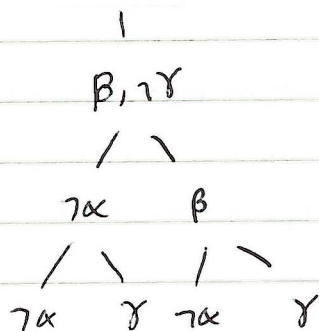 β, ¬γ
¬α β
¬α γ ¬α γ